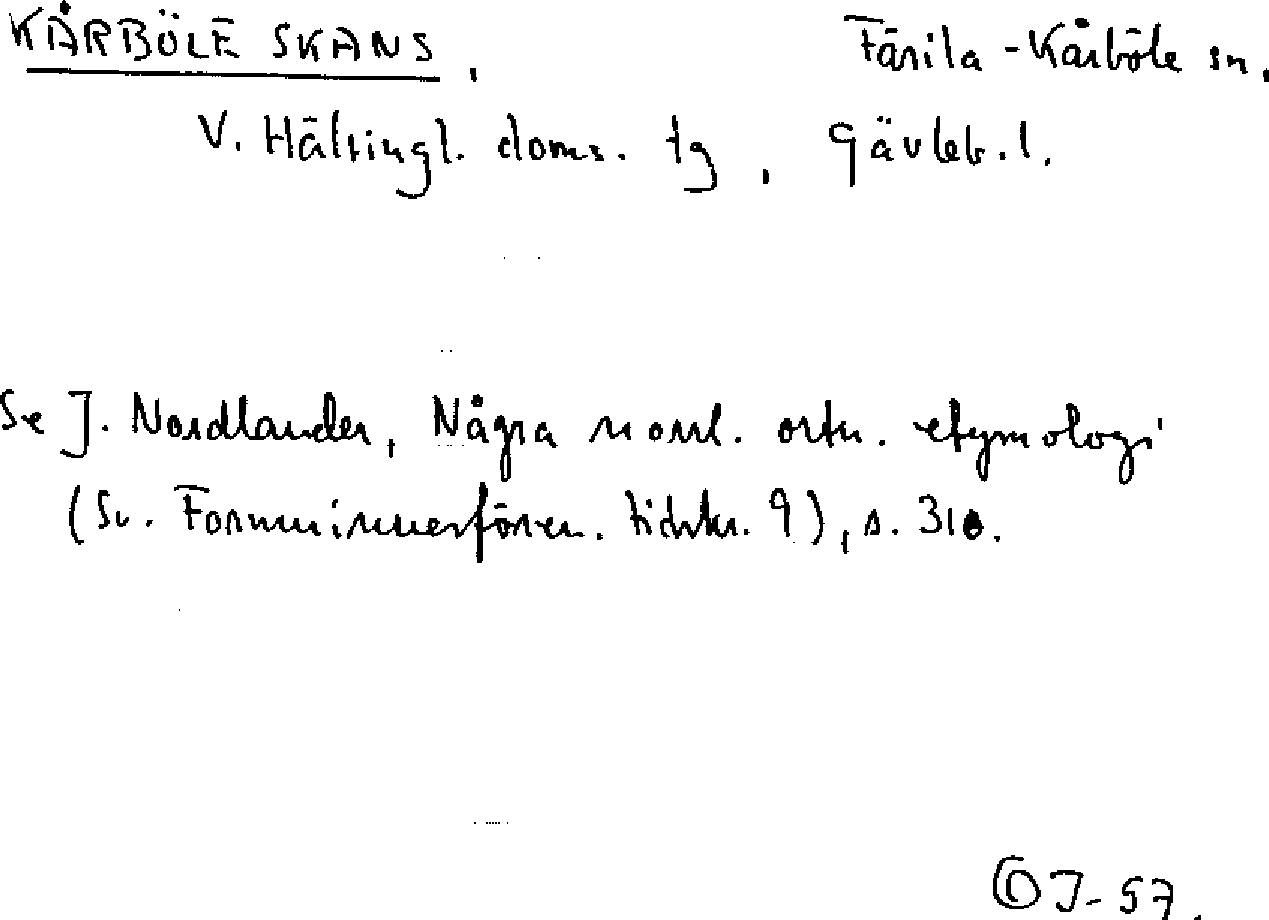 KÅRBÖLE SKANS. Färila-Kårböle sn.
V. Hälsingl. doms. tg, Gävleb. l.
Se J. Nordlander, Några norrl. ortn. etymologi
(Sv. Fornminnesfören. tidskr. 9), s. 310.
J-57.